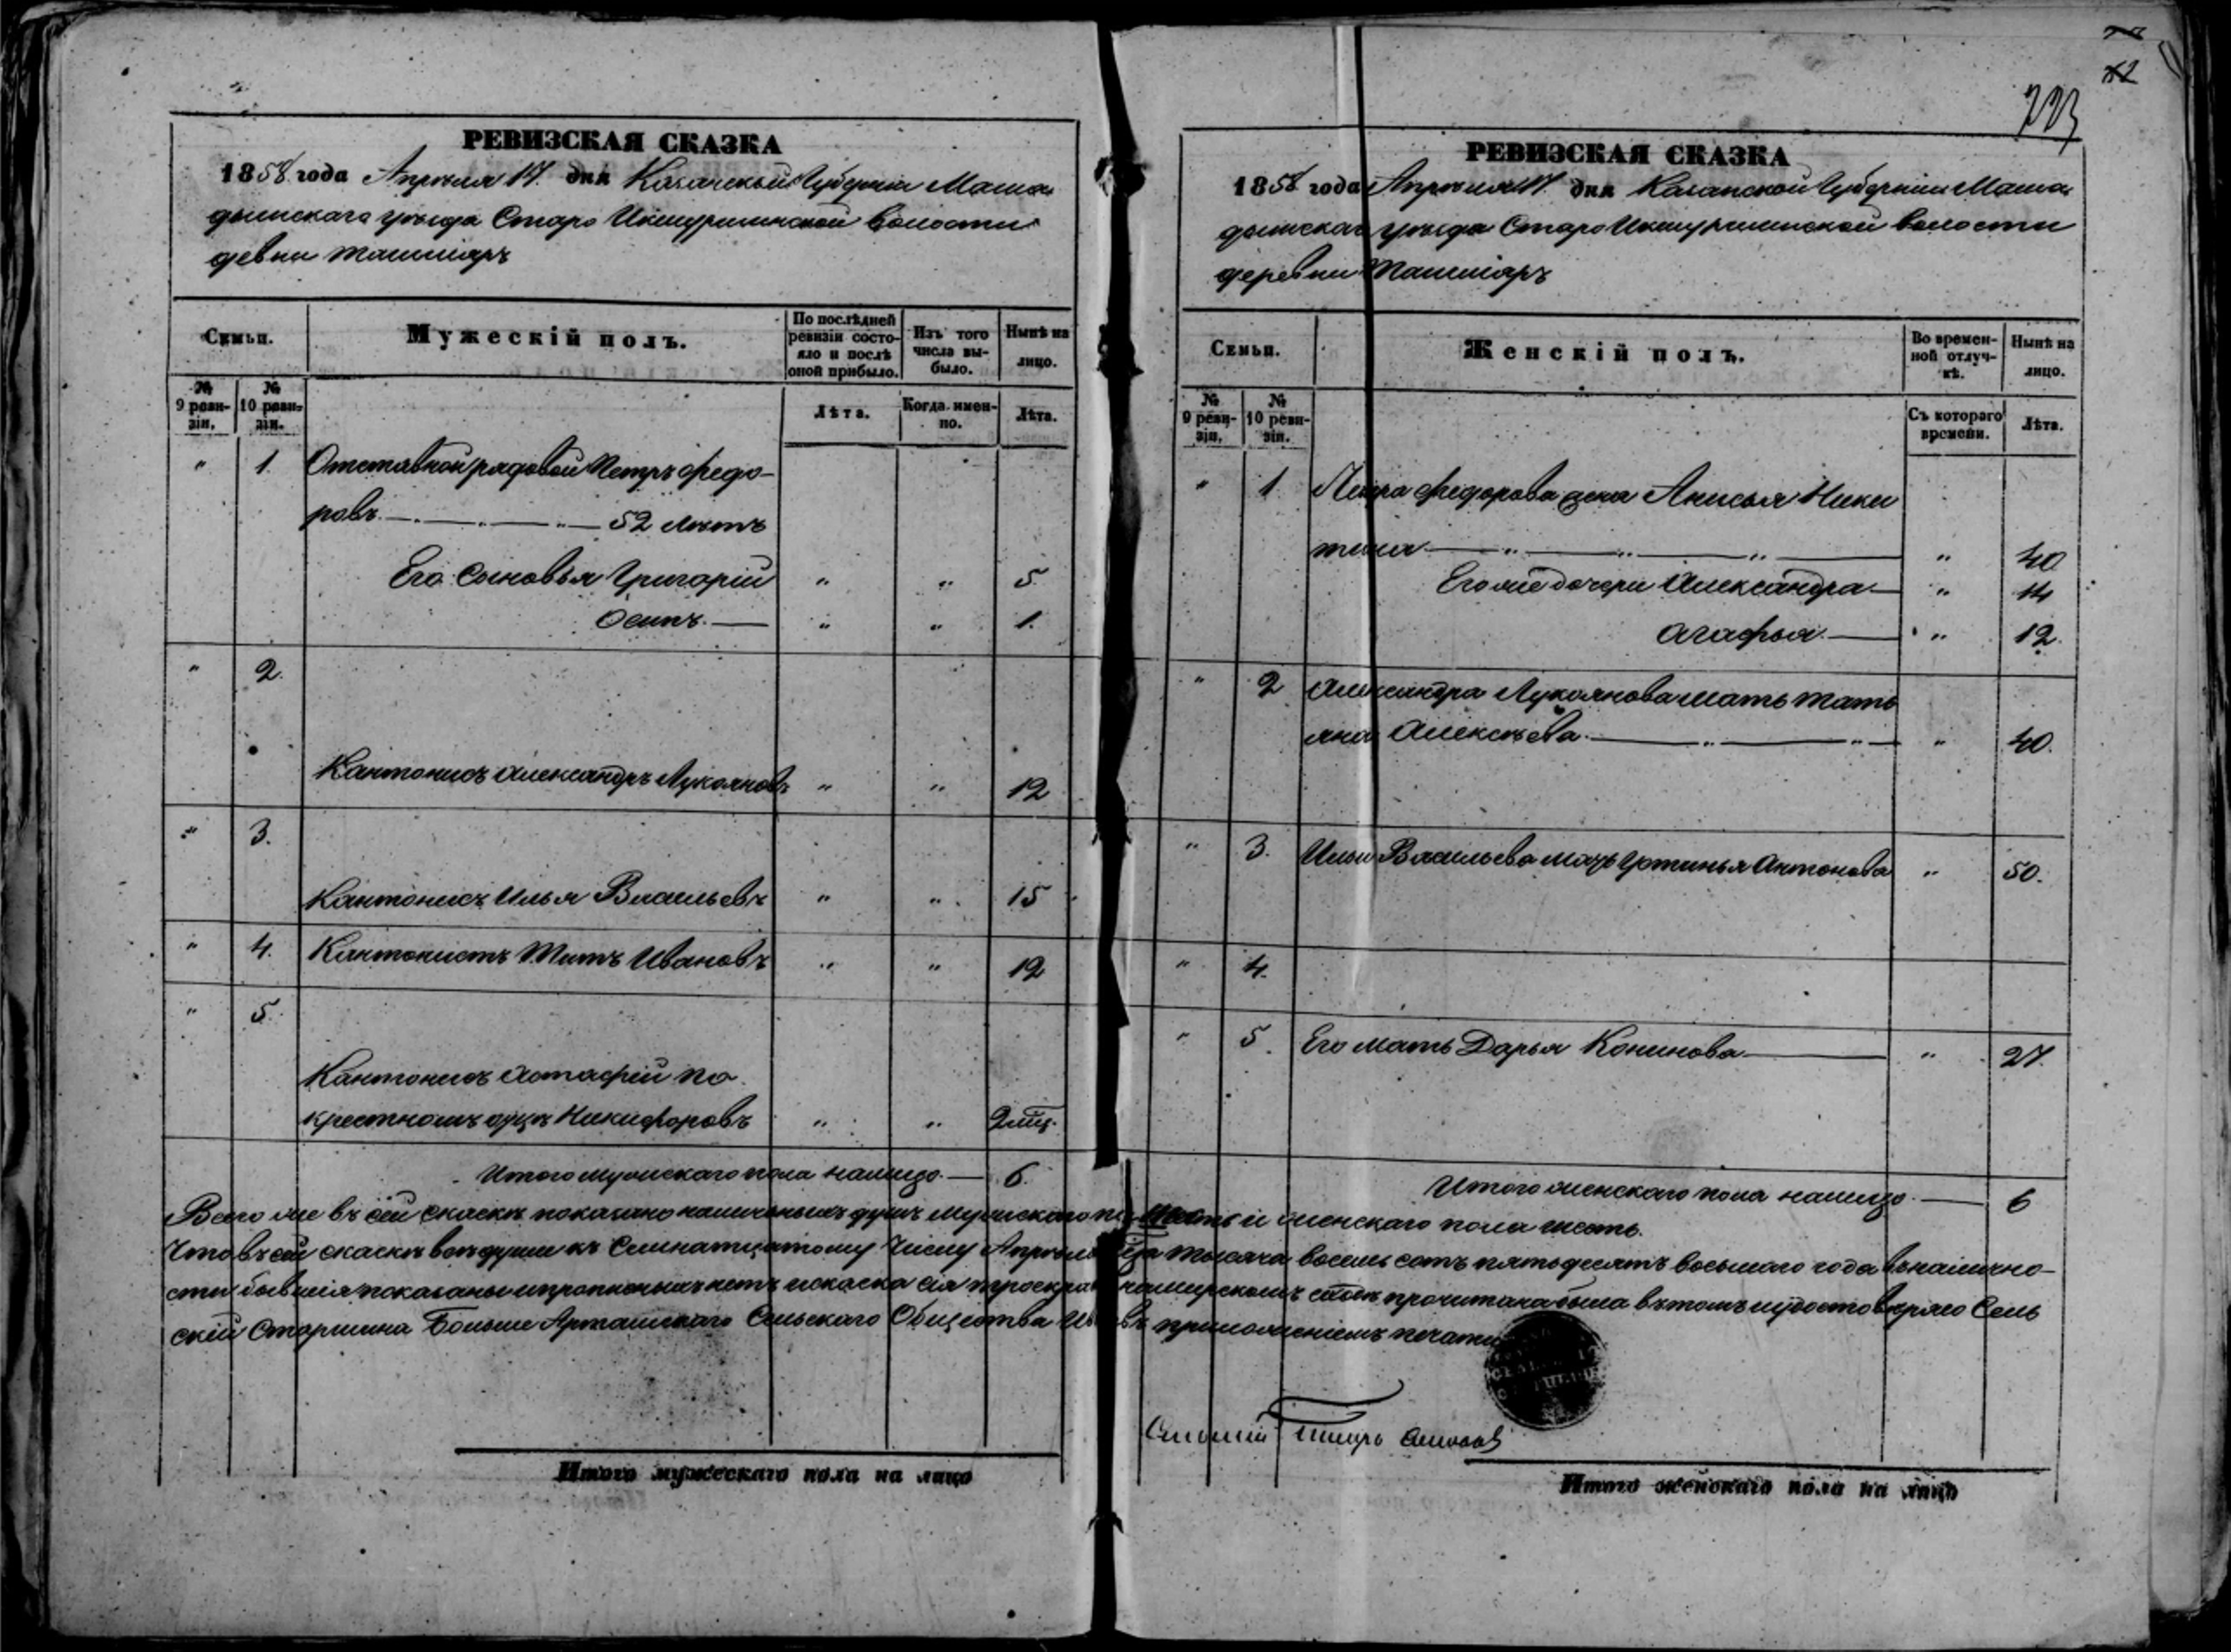 РЕВИЗСКАЯ СКАЗКА
1858 года Апрѣля 17. дня Казанской Губерніи Мама
дышскаго уѣзда Старо Икшурминской волости
девни Ташліаръ
Семьи.
Мужескій полъ.
По послѣдней ревизіи состояло и послѣ оной прибыло.
Изъ того числа выбыло.
Нынѣ на лицо.
№ 9 ревизіи.
№ 10 ревизіи.
Лѣта.
Когда именно.
Лѣта.
" 1. Отставной рядовой Петръ Федо-
ровъ 52 лѣтъ
Его Сыновья Григорій " " 5
Осипъ. " " 1.
" 2.
Кантонисъ Александръ Лукояновъ " " 12
" 3.
Кантонисъ Илья Васильевъ " " 15
" 4. Кантонистъ Титъ Ивановъ " " 12
" 5.
Кантонисъ Астафій по
крестному отцѣ Никифоровъ " " 2 мц.
Итого мужискаго пола налицо. 6.
РЕВИЗСКАЯ СКАЗКА
1858 года Апрѣля 17. дня Казанской Губерніи Мама
дышскаг уѣзда Старо Икшурминской волости
деревни Ташліаръ
Семьи.
Женскій полъ.
Во временной отлучкѣ.
Нынѣ на лицо.
№ 9 ревизіи.
№ 10 ревизіи.
Съ котораго времени.
Лѣта.
" 1 Петра Федорова жена Анисья Ники
тина " 40
Его же дочери Александра " 14
Агафья " 12.
" 2 Александра Лукоянова мать Тать
яна Алексѣева " 40.
" 3. Ильи Васильева мать Устинья Антонова " 50.
" 4.
" 5. Его мать Дарья Конинова " 27.
Итого женскаго пола налицо. 6
Всего же въ сей скаскѣ показано наличныхъ душъ мужискаго по шесть и женскаго пола шесть.
Что въ сей скаскѣ всѣ души къ Семнатцатому числу Апрѣля сего тысяча восемь сотъ пятьдесятъ восьмаго года въ налично-
сти бывшія показаны и прописныхъ нетъ и скаска сія троекрат на мирскомъ сходѣ прочитана была въ томъ и удостовѣряю Сель
скій Старшина Больше Арташскаго Сельскаго Общества съ приложеніемъ печати
Итого мужескаго пола на лицо
Итого женскаго пола на лицо